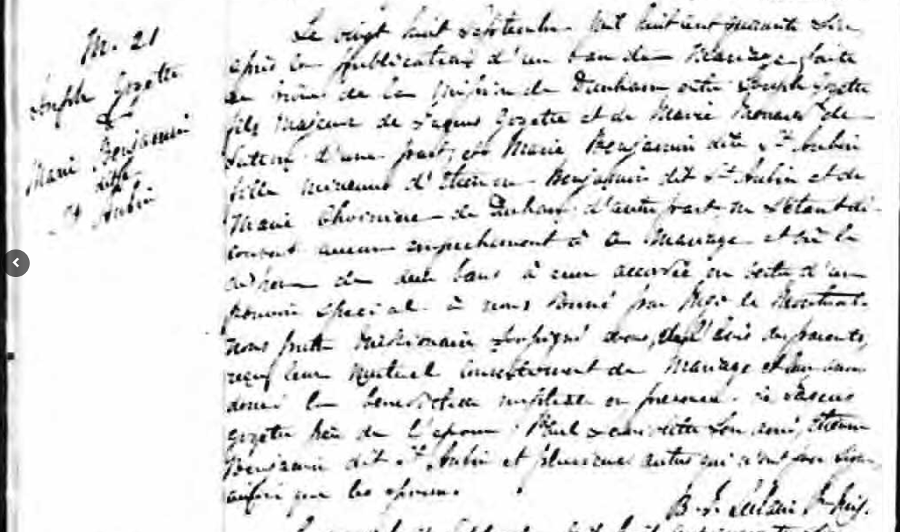 M. 21
Joseph Gozette
&
Marie Benjamin
dite
St Aubin
Le vingt huit Septembre mil huit cent quarante
après la publication d'un ban de Mariage faite
de la Mission de Dunham entre Joseph Gozette
fils majeur de Jaques Gozette et de Marie de
d'une part, et Marie Benjamin dite St Aubin
fille mineure d'Etienne Benjamin dit St Aubin et de
Marie Choiniere de Dunham d'autre part, ne s'étant dé-
couvert aucun empechement à ce Mariage et vû la
de deux bans à eux accordée en vertu d'un
pouvoir special à nous donné par Mgr de Montreal.
Nous prêtre Missionaire Soussigné avons, l'avis des parents,
reçu leur mutuel consentement de Mariage et leur avons
donné la benediction nuptiale en presence de Jaques
Gozette père de l'epoux, Paul son ami, Etienne
Benjamin dit St Aubin et plusieurs autres qui n'ont pu signer
ainsi que les epoux.
B. J. Leclaire Ptre Miss.